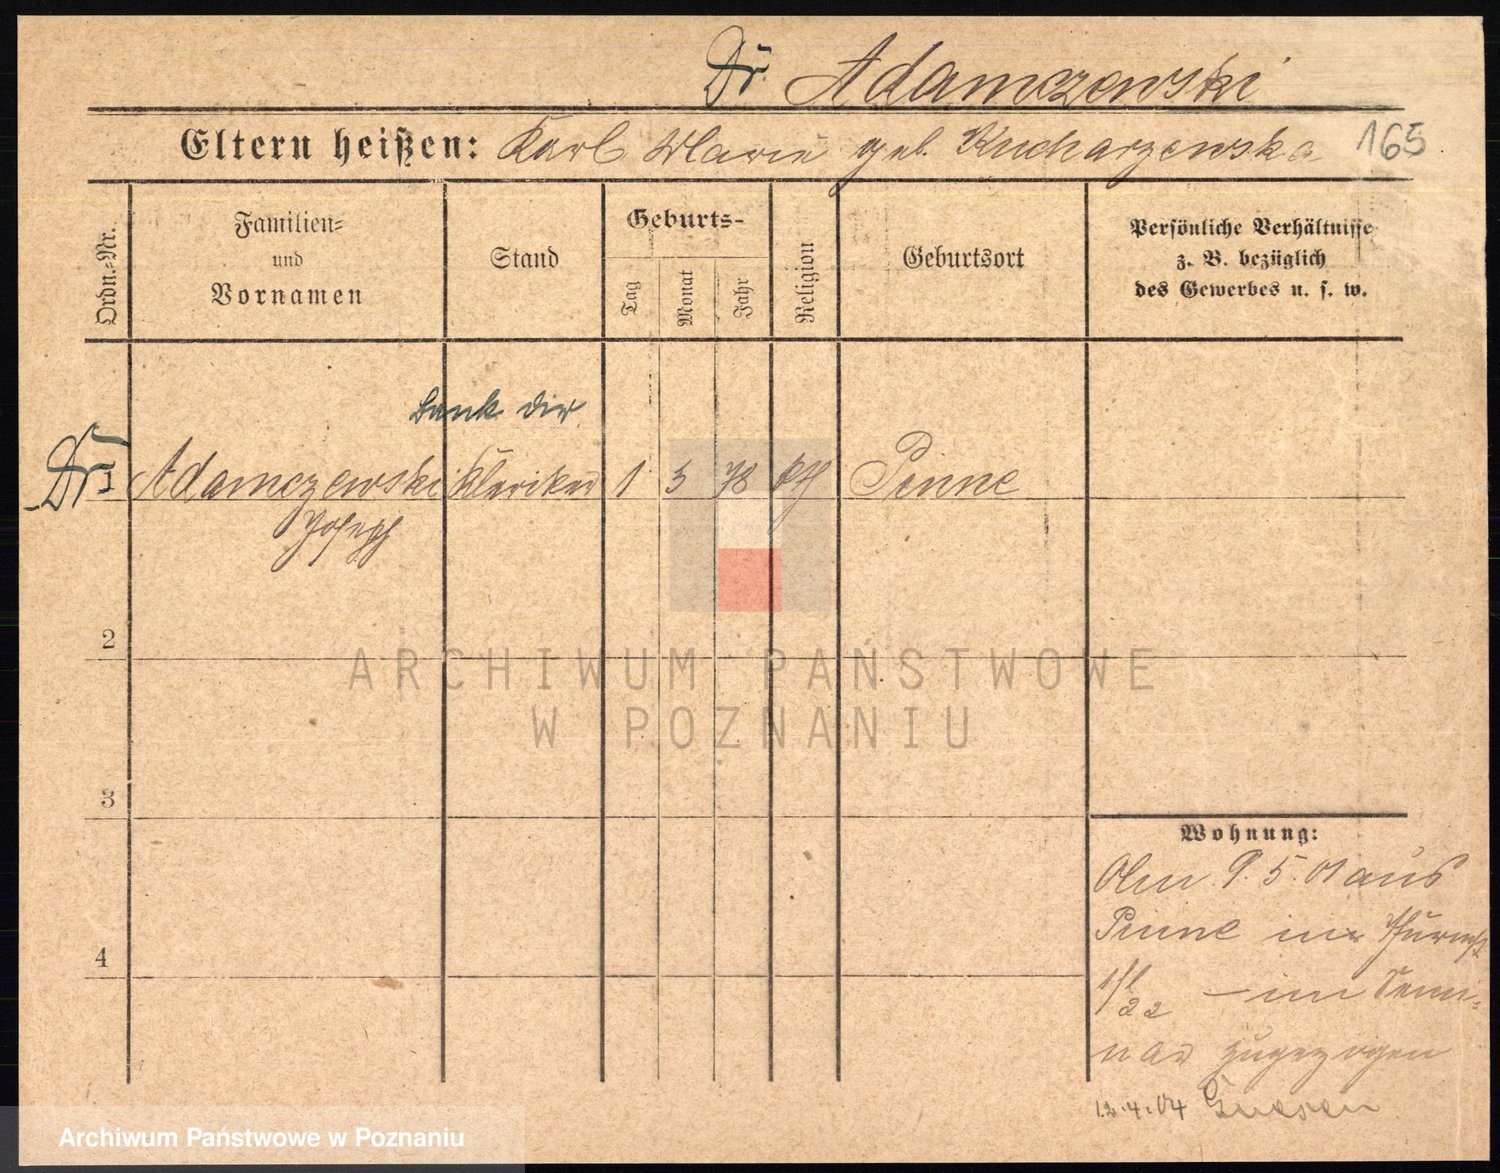 Dr. Adamczewski
Eltern heißen: Karl Marie geb. Kucharzewska 165
Ordn.-Nr.
Familien-
und
Vornamen
Stand
Geburts-
Tag
Monat
Jahr
Religion
Geburtsort
Persönliche Verhältnisse
z. B. bezüglich
des Gewerbes u. s. w.
Bank dir.
Dr 1 Adamczewski Kleriker 1 3 78 kth Pinne
Joseph
2
ARCHIWUM PAŃSTWOWE
W POZNANIU
3
Wohnung:
Am 9. 5. 01 aus
Pinne
4
22 — im Semi-
nar zugezogen
12.4.04 Gnesen
Archiwum Państwowe w Poznaniu